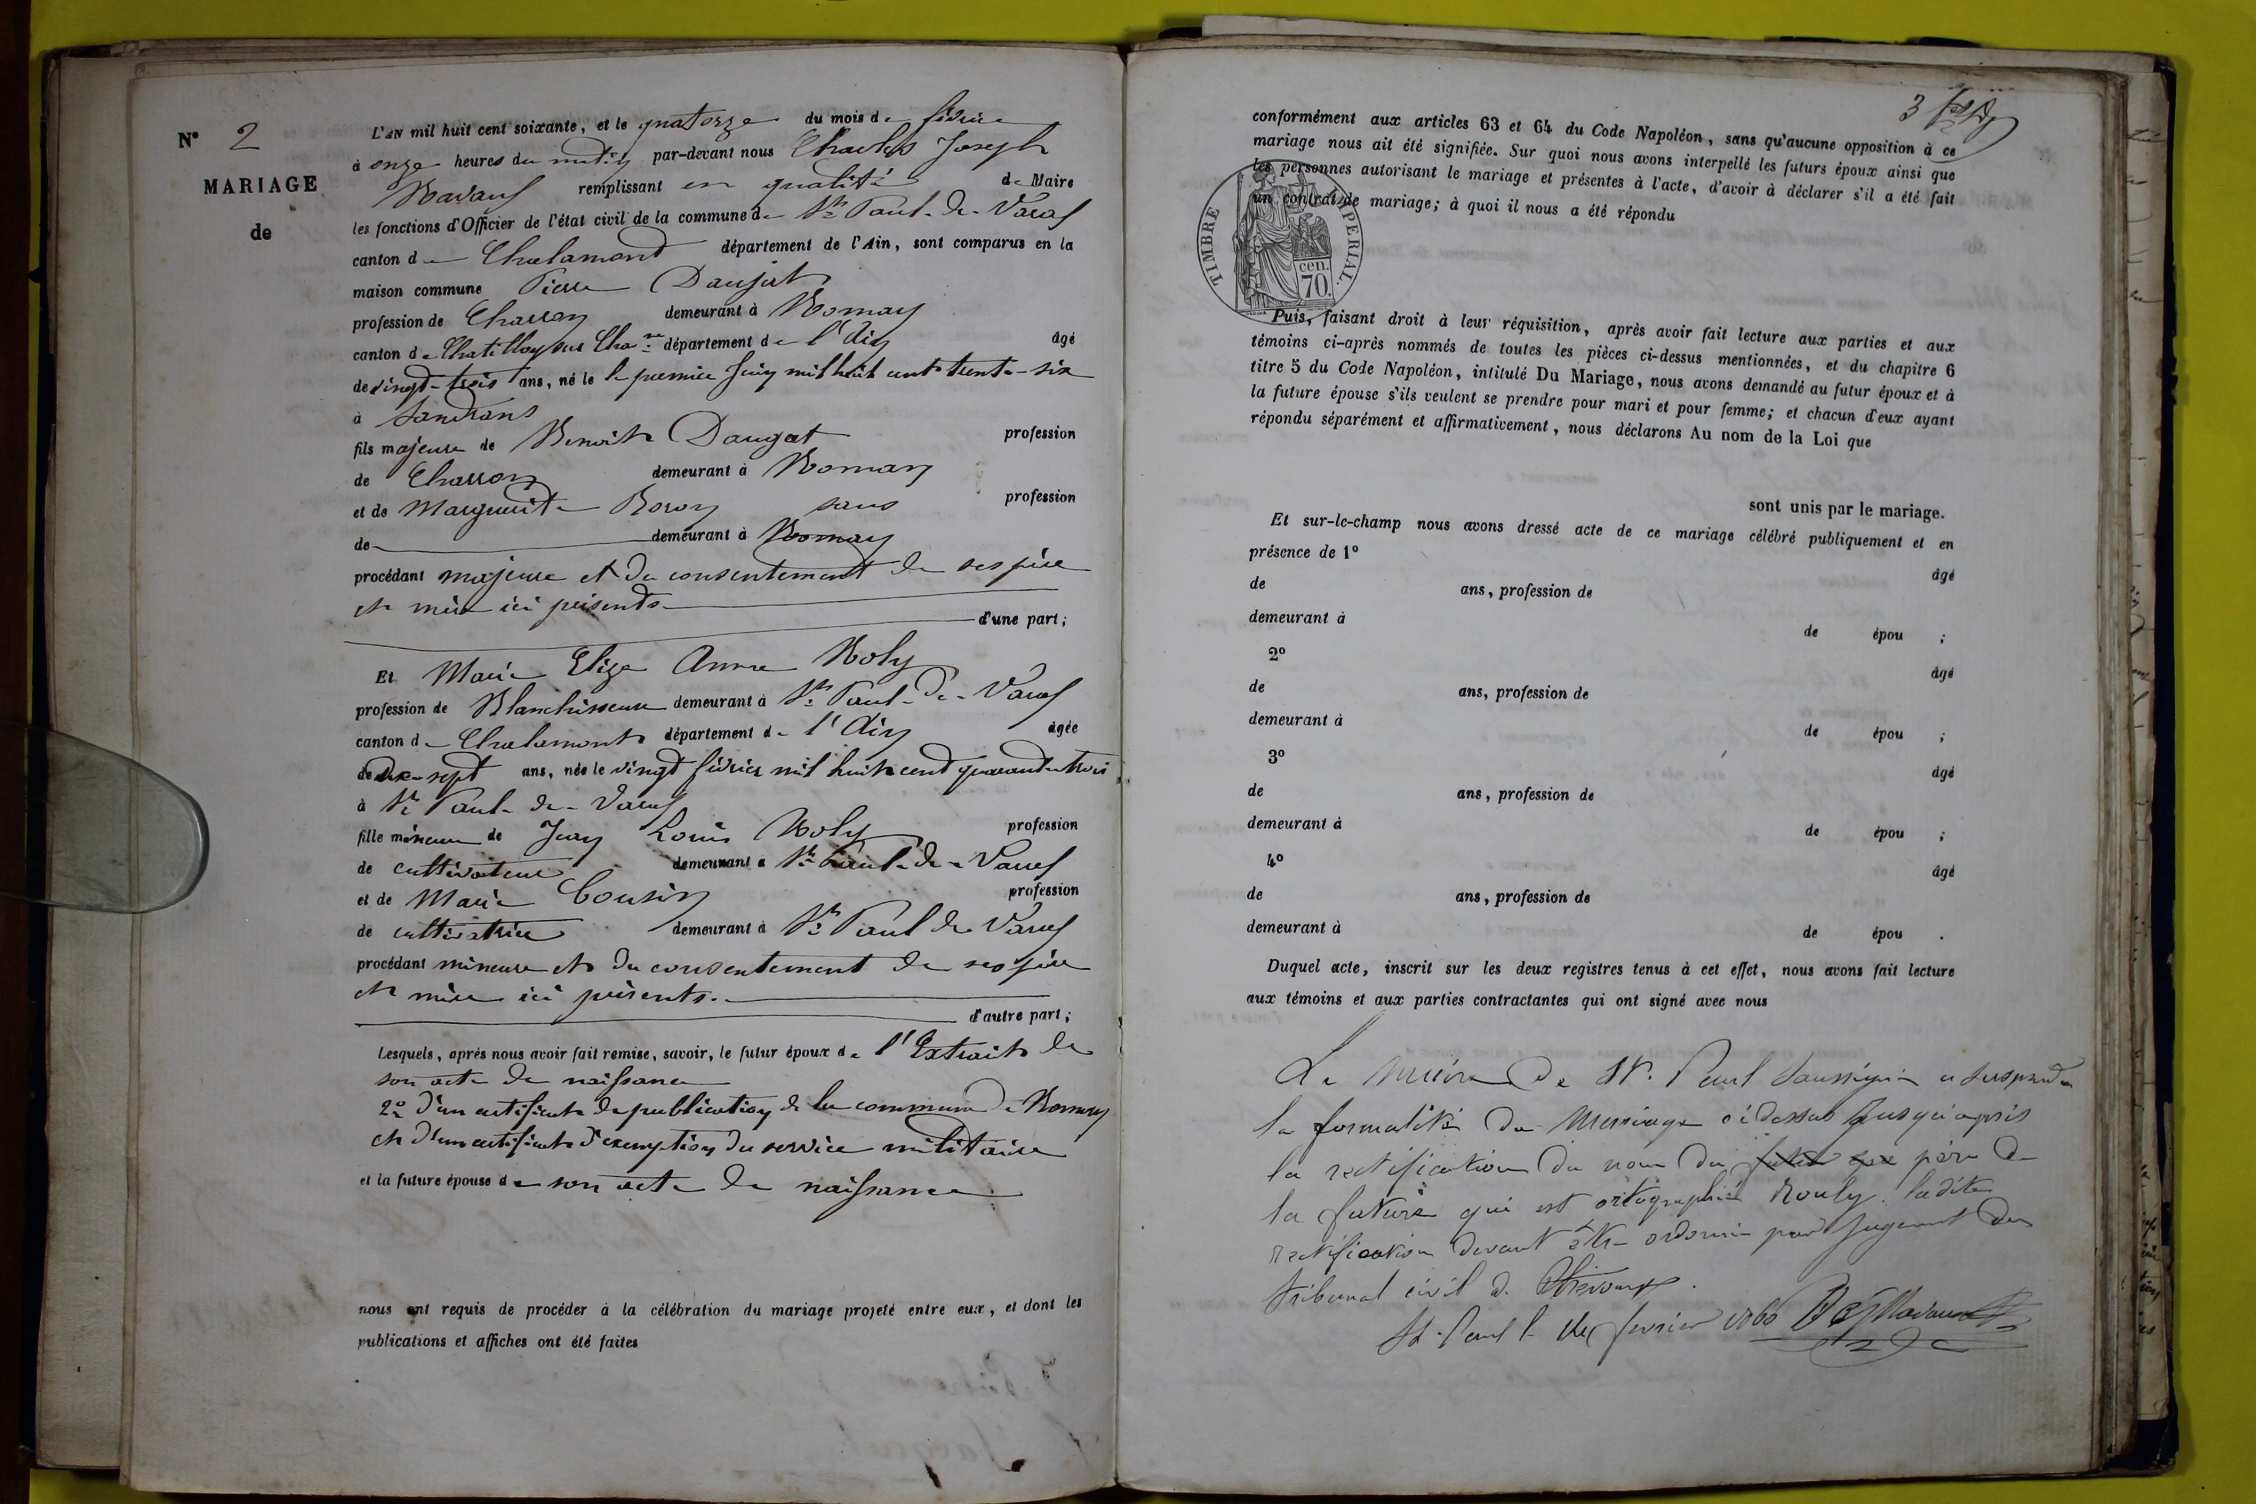 N° 2
MARIAGE
de
L'an mil huit cent soixante, et le quatorze du mois de février
à onze heures du matin par-devant nous Charles Joseph
Navaud remplissant en qualité de Maire
les fonctions d'Officier de l'état civil de la commune de St Paul-de-Varax
canton de Chalamont département de l'Ain, sont comparus en la
maison commune Pierre Daujat
profession de Charron demeurant à Romany
canton de Chatillon sur Cha.ne département de l'Ain âgé
de vingt-trois ans, né le le premier Juin mil huit cent trente-six
à Sandrans
fils majeur de Benoit Daugat profession
de Charron demeurant à Romany
et de Marguerite sans profession
de demeurant à Romany
procédant majeur et du consentement de ses père
et mère ici présents
d'une part;
Et Marie Elize Anne Roly
profession de Blanchisseuse demeurant à St Paul-de-Varax
canton de Chalamont département de l'Ain âgée
de dix-sept ans, née le vingt février mil huit cent quarante trois
à St Paul-de-Varax
fille mineure de Jean Louis Roly profession
de cultivateur demeurant à St Paul-de-Varax
et de Marie Cousin profession
de cultivatrice demeurant à St Paul de Varax
procédant mineure et du consentement de ses père
et mère ici présents.
d'autre part;
Lesquels, après nous avoir fait remise, savoir, le futur époux de l'Extrait de
son acte de naissance
2° d'un certificat de publication de la commune de Romany
et d'un certificat d'exemption du service militaire
et la future épouse de son acte de naissance
nous ont requis de procéder à la célébration du mariage projeté entre eux, et dont les
publications et affiches ont été faites
3
conformément aux articles 63 et 64 du Code Napoléon, sans qu'aucune opposition à ce
mariage nous ait été signifiée. Sur quoi nous avons interpellé les futurs époux ainsi que
les personnes autorisant le mariage et présentes à l'acte, d'avoir à déclarer s'il a été fait
un contrat de mariage; à quoi il nous a été répondu
TIMBRE IMPERIAL.
70 cen.
Puis, faisant droit à leur réquisition, après avoir fait lecture aux parties et aux
témoins ci-après nommés de toutes les pièces ci-dessus mentionnées, et du chapitre 6
titre 5 du Code Napoléon, intitulé Du Mariage, nous avons demandé au futur époux et à
la future épouse s'ils veulent se prendre pour mari et pour femme; et chacun d'eux ayant
répondu séparément et affirmativement, nous déclarons Au nom de la Loi que
sont unis par le mariage.
Et sur-le-champ nous avons dressé acte de ce mariage célébré publiquement et en
présence de 1° âgé
de ans, profession de
demeurant à de épou ;
2° âgé
de ans, profession de
demeurant à de épou ;
3° âgé
de ans, profession de
demeurant à de épou ;
4° âgé
de ans, profession de
demeurant à de épou .
Duquel acte, inscrit sur les deux registres tenus à cet effet, nous avons fait lecture
aux témoins et aux parties contractantes qui ont signé avec nous
Le Maire de St. Paul Soussigné a suspendu
la formalité du Mariage ci dessus jusqu'après
la rectification du nom du père de
la future qui est ortographié Rouly. ladite
rectification devant être ordonnée par Jugement du
tribunal civil de Trévoux.
St. Paul le février 1860